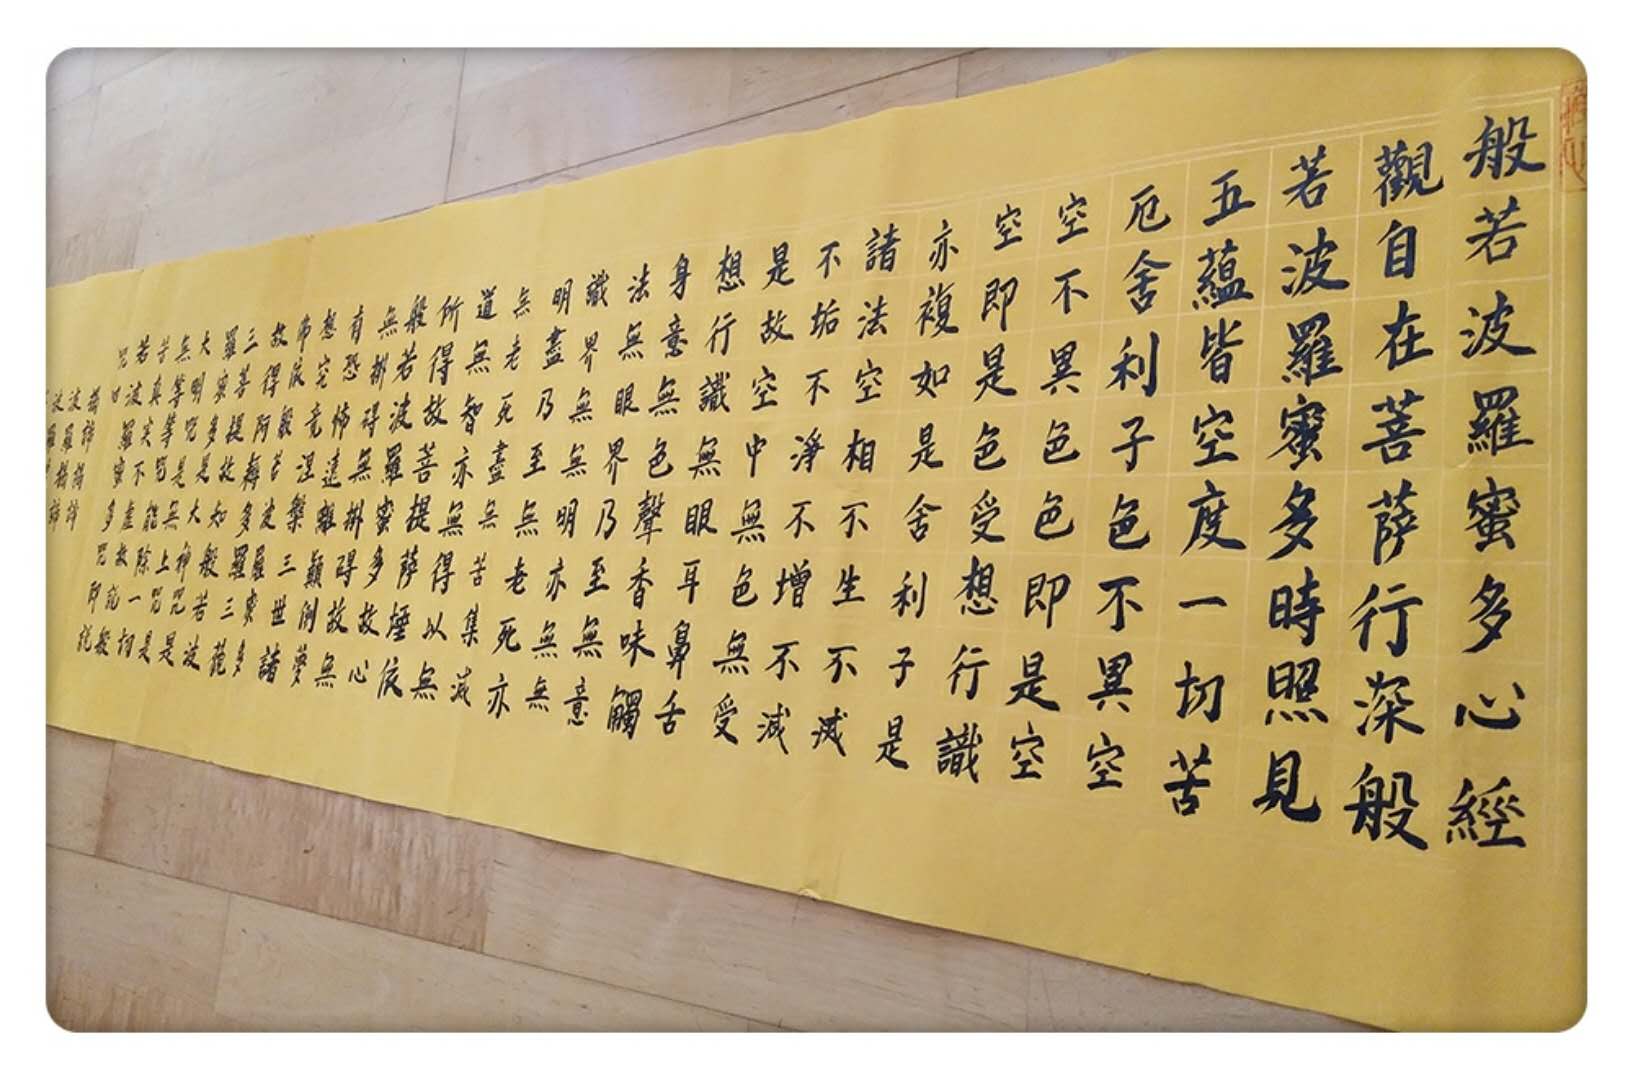 般若波羅蜜多心經
觀自在菩薩行深般
若波羅蜜多時照見
五蘊皆空度一切苦
厄舍利子色不異空
空不異色色即是空
空即是色受想行識
亦複如是舍利子是
諸法空相不生不滅
不垢不淨不增不減
是故空中無色無受
想行識無眼耳鼻舌
身意無色聲香味觸
法無眼界乃至無意
識界無無明亦無無
明盡乃至無老死亦
無老死盡無苦集滅
道無智亦無得以無
所得故菩提薩埵依
般若波羅蜜多故心
無掛碍無掛碍故無
有恐怖遠離顛倒夢
想究竟涅槃三世諸
佛依般若波羅蜜多
故得阿耨多羅三藐
三菩提故知般若波
羅蜜多是大神咒是
大明咒是無上咒是
無等等咒能除一切
苦真实不虛故說般
若波羅蜜多咒即說
咒曰
揭諦揭諦
波羅揭諦